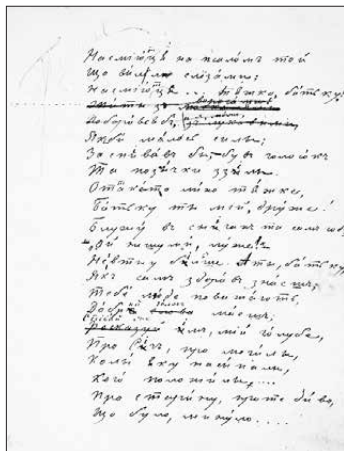 Насміется на псаломъ той
Що вилью слёзами;
Насміется...; тяжко, батьку,
Жити зъ ворогами
Поборовсь бъ, може,
Якби малось силы;
Заспівавъ бы, бувъ голосокъ
Та позички ззілы.
Отаке то лихо тяжке,
Батьку ты мій, друже!
Блужу въ снігахъ та самъ собі
"Ой нешуми, луже!"
Невтну більше. А ты, батьку,
Якъ самъ здоровъ знаешъ;
Тебе люде поважають,
Добрый голосъ маешъ;
Співай же имъ, мій голубе,
Про Січъ, про могилы,
Колы яку насыпалы,
Кого положилы,....
Про старину, про те диво,
Що було, минуло....